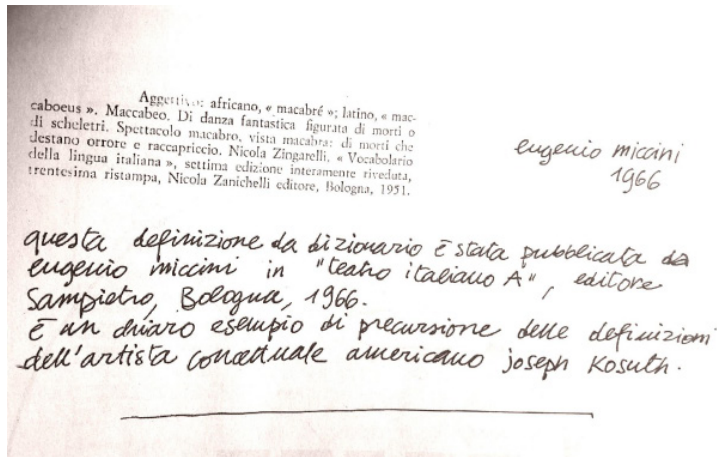 Aggettivo: africano, « macabré »; latino, « mac-
caboeus ». Maccabeo. Di danza fantastica figurata di morti o
di scheletri. Spettacolo macabro, vista macabra: di morti che
destano orrore e raccapriccio. Nicola Zingarelli, « Vocabolario
della lingua italiana », settima edizione interamente riveduta,
trentesima ristampa, Nicola Zanichelli editore, Bologna, 1951.
eugenio miccini
1966
questa definizione da dizionario è stata pubblicata da
eugenio miccini in "teatro italiano A", editore
Sampietro, Bologna, 1966.
È un chiaro esempio di precursione delle definizioni
dell'artista concettuale americano joseph Kosuth.